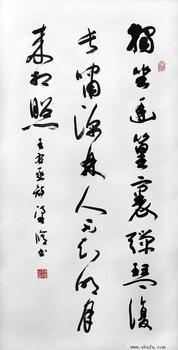 獨坐幽篁裏彈琴復
長嘯深林人不知明月
來相照
王右丞詩 書
www.shufa.com